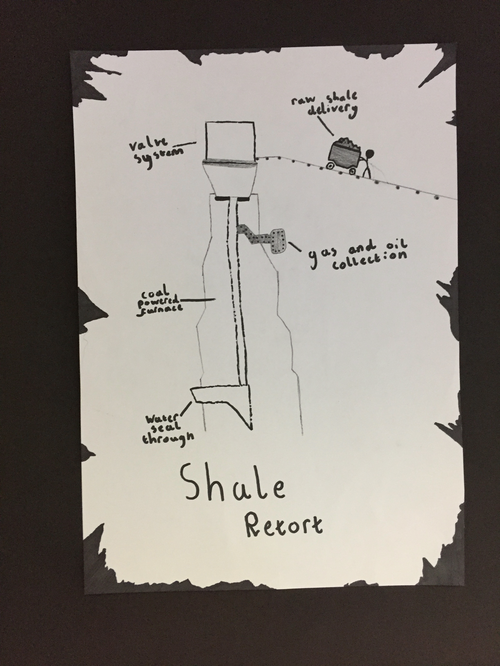 raw shale
delivery
valve
system
gas and oil
collection
coal
powered
furnace
Water
seal
through
Shale
Retort